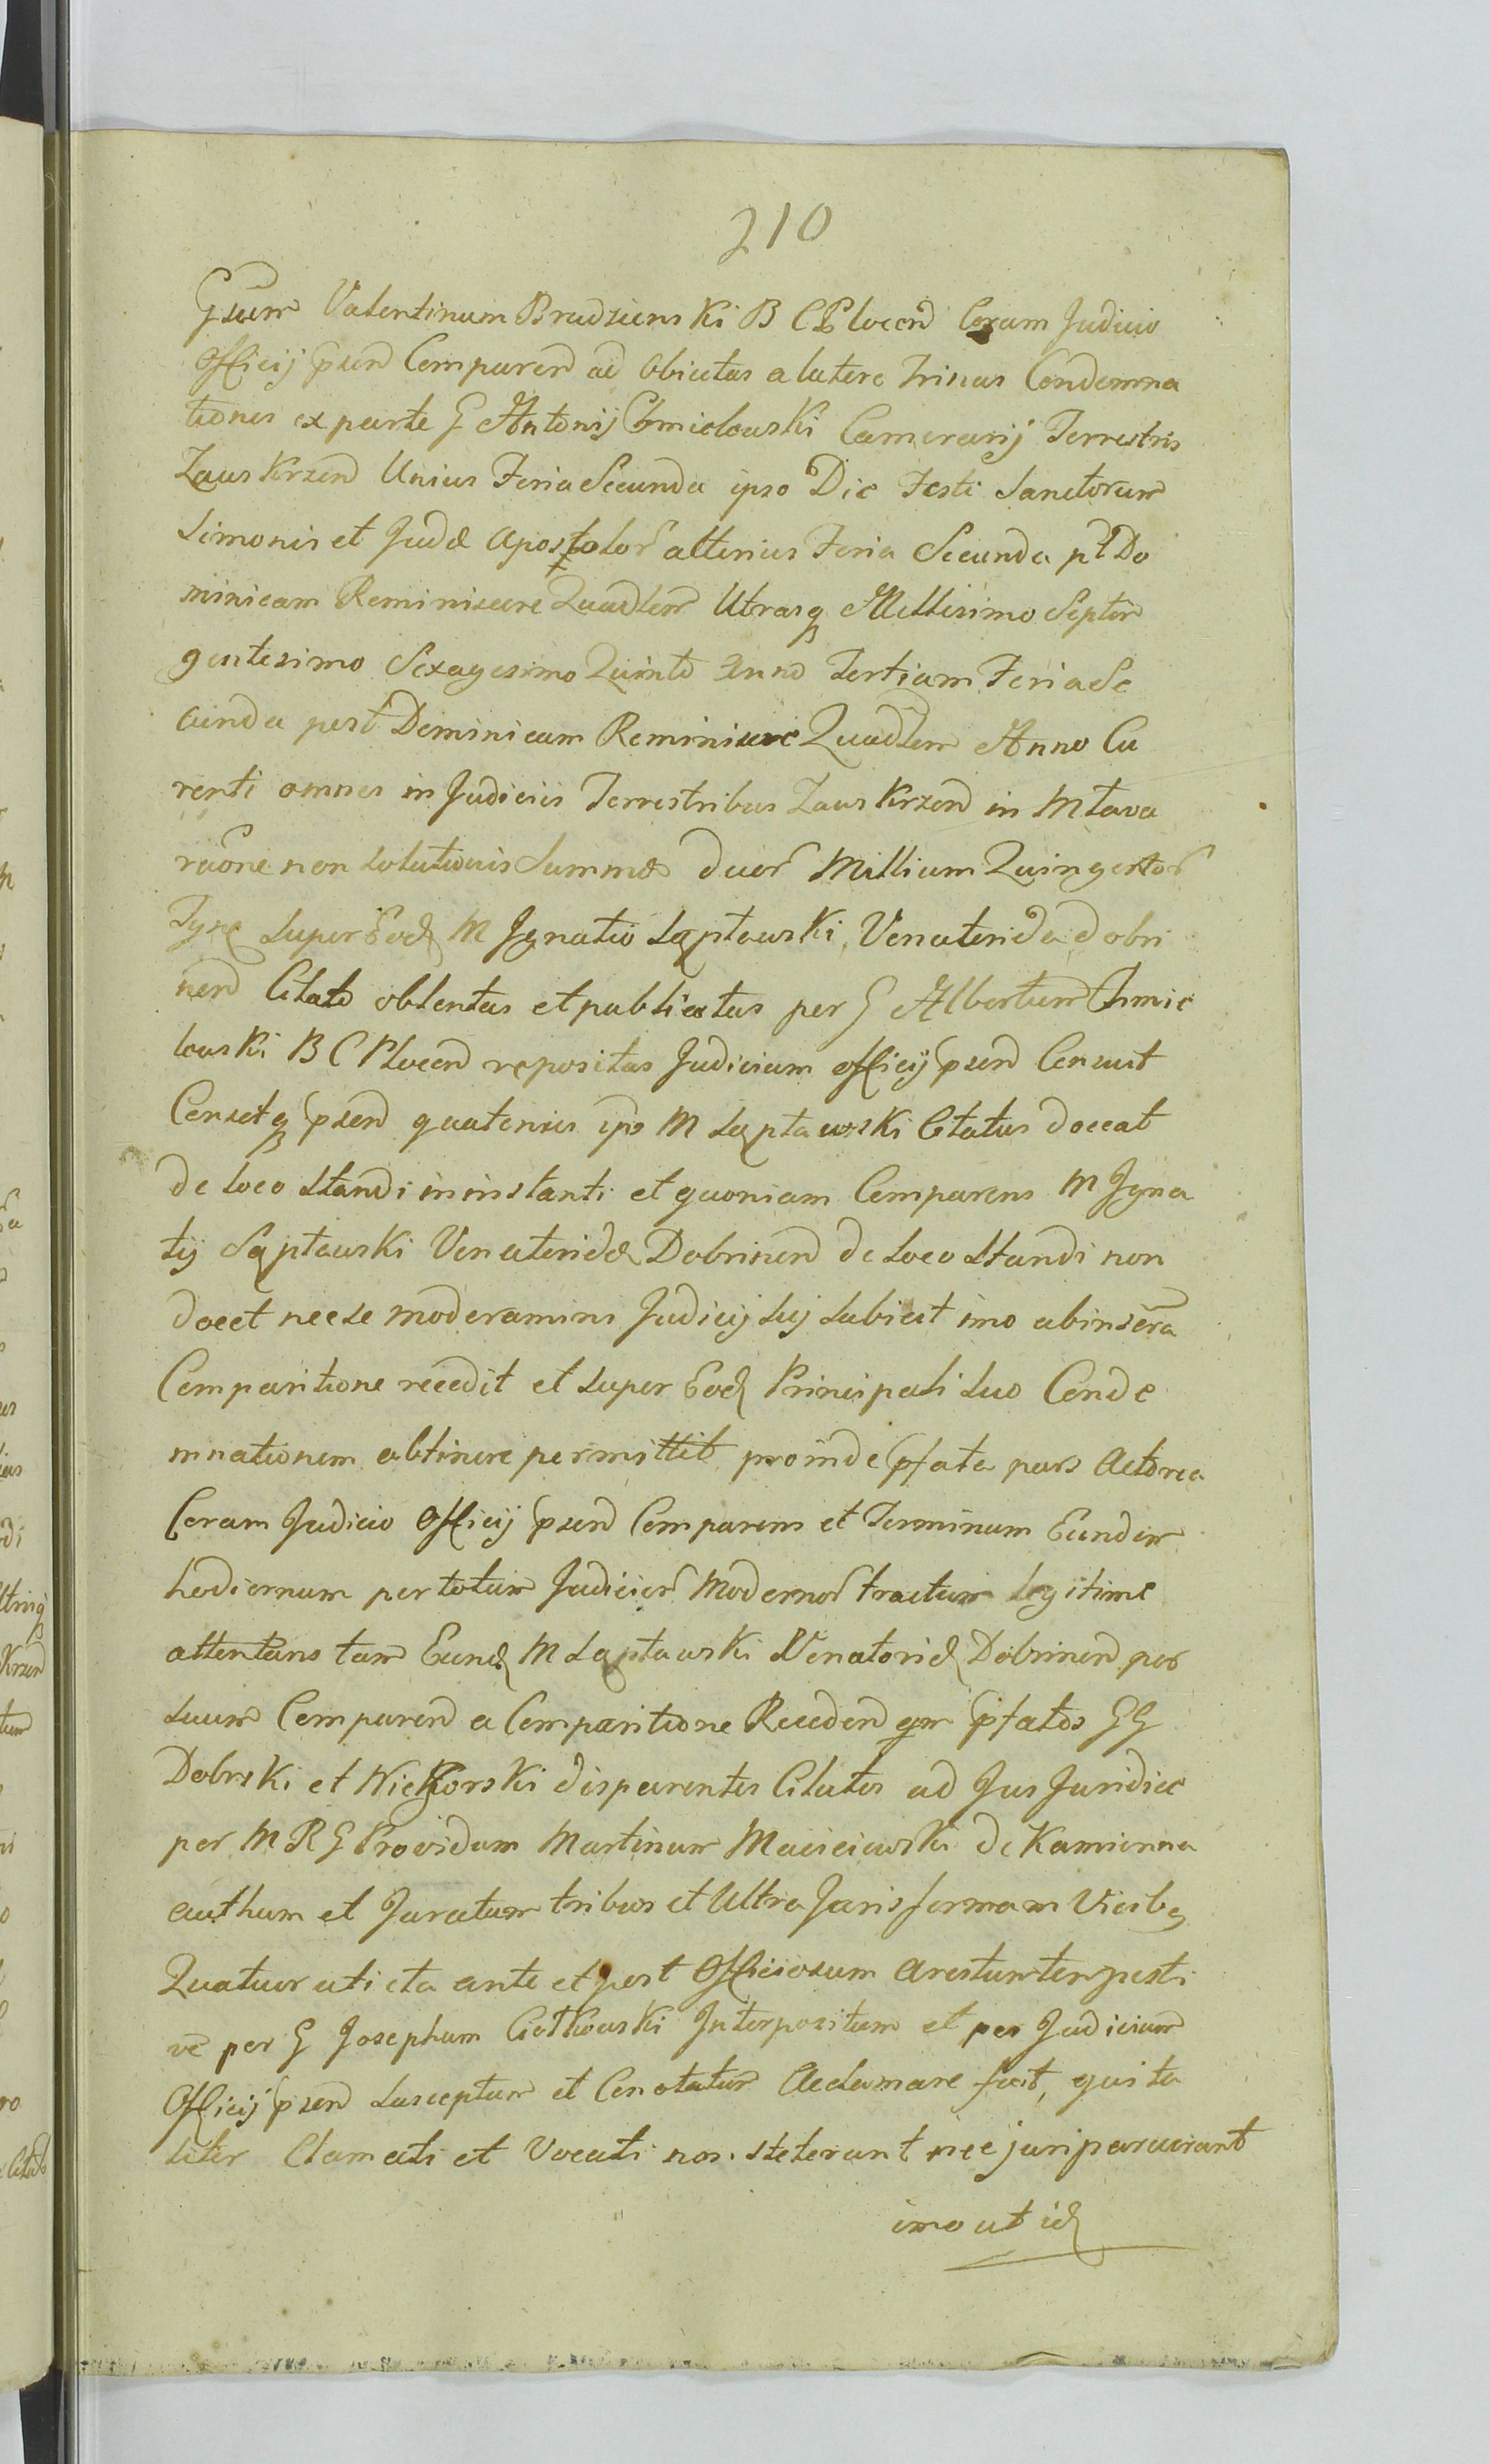 210
Gsum Valentinum Brudzienski B C Plocen Coram Judicio
Officij psen Comparen ad Obiectas a latere Trinas Condemna
tiones ex parte G Antonij Chmielowski Camerarij Terrestris
Zawskrzen Unius Feria Secunda ipso Die Festi Sanctorum
Simonis et Judæ Apostolor alterius Feria Secunda pt Do
minicam Reminiscere Quadlem Utrasq Millesimo Septin
gentesimo Sexagesimo Quinto Anno Tertiam Feria Se
cunda post Dominicam Reminiscere Quadlem Anno Cu
renti omnes in Judiciis Terrestribus Zawskrzen in Mlava
raone non Solutionis Summæ duor Millium Quingentor
Tynf Super Eod M Ignatio Łaptowski, Venatorida Dobri
nen Citato obtentas et publicatas per G Albertum Chmie
lowski B C Plocen repositas Judicium officij psen Censuit
Censetq psen quatenus ips M Łaptowski Citatus doceat
de loco Standi in instanti et quoniam Comparens M Igna
tij Łaptowski Venatoridæ Dobrinen de Loco Standi non
docet nec se moderamini Judicij Sui Subiicit imo ab inserta
Comparitione recedit et Super Eod Principali Suo Conde
mnationem obtinere permittit proinde pfata pars Actorea
Coram Judicio Officij psen Comparens et Terminum Eundem
hodiernum per totum Judicior Modernor tractum legitime
attentans tam Eund M Łaptowski Venatorid Dobrinen per
Suum Comparen a Comparitione Receden qm pfatos GG
Dobrski et Wickorski disparentes Citatos ad Jus Juridice
per M R G Providum Martinum Macieiewski de Kamienna
authum et Juratum tribus et Ultra Juris formam Vicibq
Quatuor uti ita ante et post Officiosum Arestum tempesti
ve per G Josephum Ciotkowski Interpositum et per Judicium
Officij psen Susceptum et Conotatum Acclamare fecit, qui ta
liter Clamati et Vocati non steterunt nec juri paruerunt
imo ut id